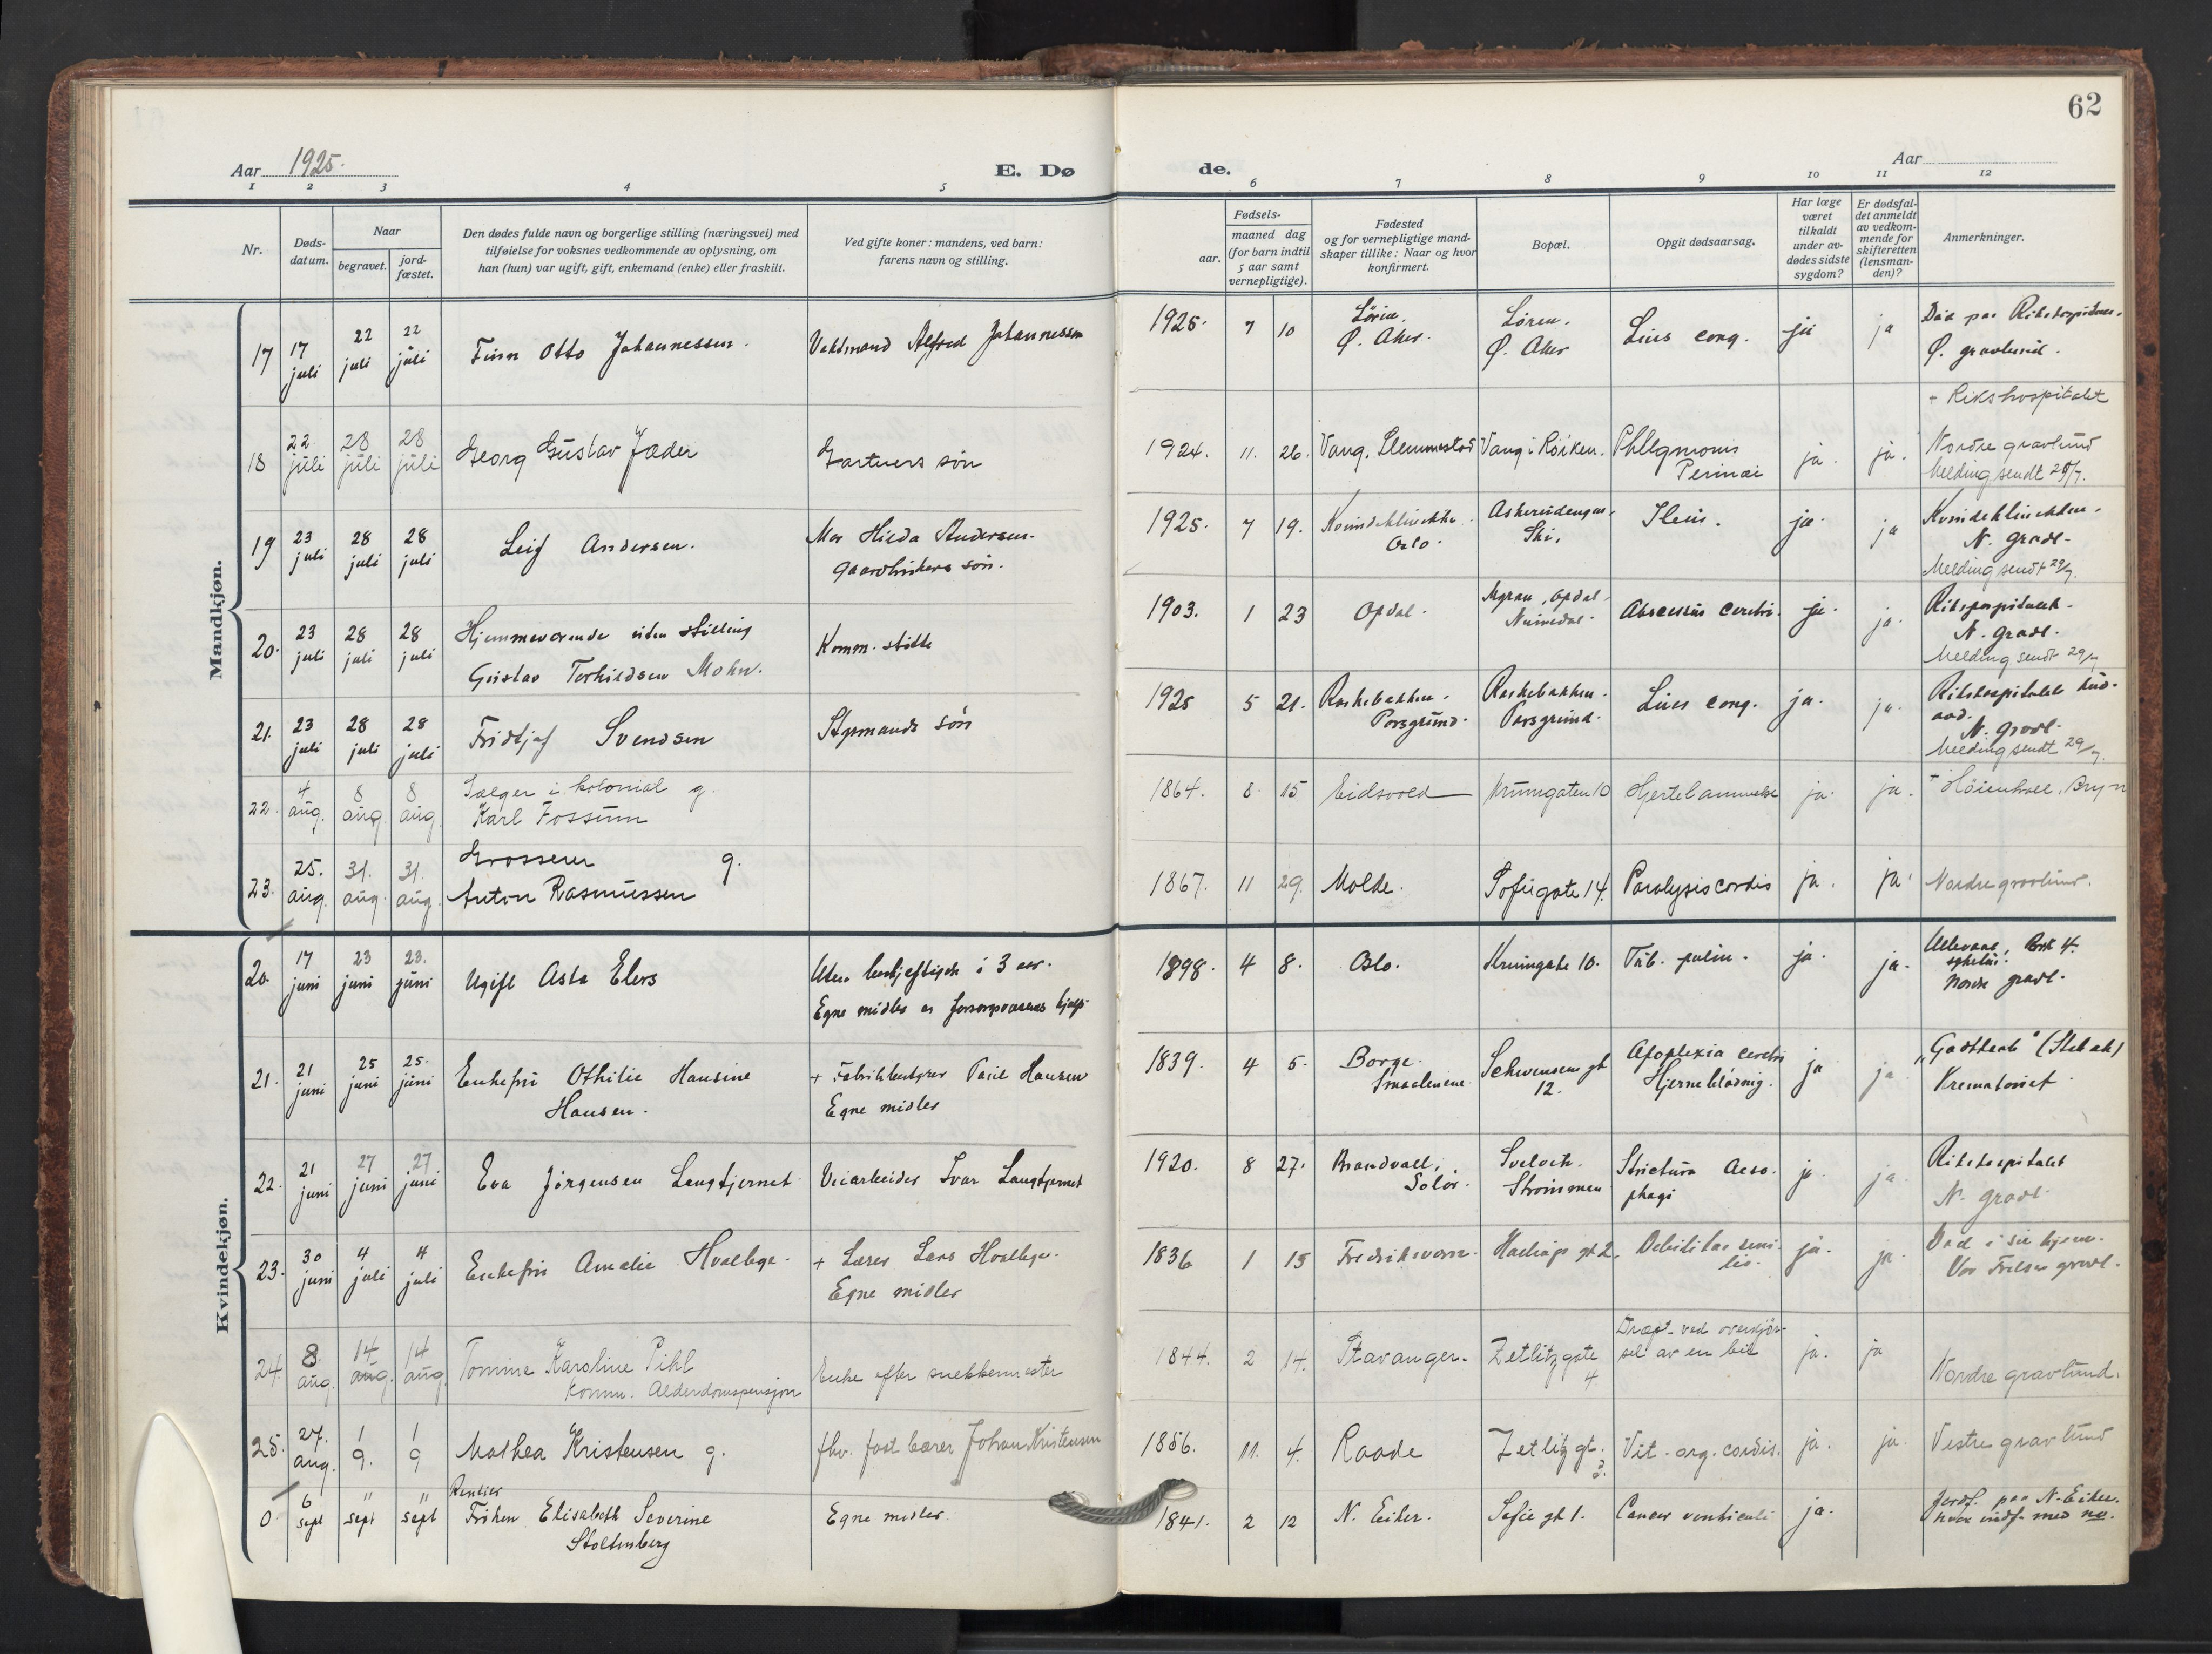 62
Aar 1925.
E. Dø
de.
Aar
1 2 3 4 5 6 7 8 9 10 11 12
Nr.
Døds-
datum.
Naar
begravet.
jord-
fæstet.
Den dødes fulde navn og borgerlige stilling (næringsvei) med
tilføielse for voksnes vedkommende av oplysning, om
han (hun) var ugift, gift, enkemand (enke) eller fraskilt.
Ved gifte koner: mandens, ved barn:
farens navn og stilling.
Fødsels-
aar.
maaned dag
(for barn indtil
5 aar samt
vernepligtige).
Fødested
og for vernepligtige mand-
skaper tillike: Naar og hvor
konfirmert.
Bopæl.
Opgit dødsaarsag.
Har læge
været
tilkaldt
under av-
dødes sidste
sygdom?
Er dødsfal-
det anmeldt
av vedkom-
mende for
skifteretten
(lensman-
den)?
Anmerkninger.
Mandkjøn.
17 17 juli 22 juli 22 juli Finn Otto Johannessen. Vaktmand Alfred Johannessen 1925. 7 10 Løren. Ø. Aker. Løren. Ø. Aker Lues cong. ja ja Død paa Rikshospitalet. Ø. gravlund.
18 22 juli 28 juli 28 juli Georg Gustav Jæder Gartners søn 1924. 11. 26. Vang, Slemmestad Vang i Röiken. Phlegmonis Perinæi ja. ja. + Rikshospitalet Nordre gravlund Melding sendt 29/7.
19 23 juli 28 juli 28 juli Leif Andersen. Mor Hilda Andersen. søn. 1925. 7 19. Kvindeklinikken Oslo. Askerudengen, Ski. Ileus. ja. ja Kvindeklinikken. N. gravl. Melding sendt 29/7.
20. 23 juli 28 juli 28 juli Hjemmeværende uten stilling Gustav Torkildsen Mohn. Komm. støtte 1903. 1 23 Opdal. Opdal. Numedal. Abscessus cerebri. ja. ja. Rikshospitalet. N. gravl. Melding sendt 29/7
21. 23 juli 28 juli 28 juli Fridtjof Svendsen Styrmands søn 1925 5 21. Raskebakken. Porsgrund. Raskebakken. Porsgrund. Lues cong. ja. ja. Rikshospitalet hud- avd. N. gravl. Melding sendt 29/7.
22. 4 aug. 8 aug. 8 aug. Sælger i kolonial g. Karl Fossum 1864. 8. 15 Eidsvold Krumgaten 10 Hjertelammelse ja. ja. + Höienhall, Bryn
23. 25. aug. 31. aug. 31. aug. Grosserer g. Anton Rasmussen 1867. 11 29. Molde. Sofiegate 14. Paralysis cordis ja. ja. Nordre gravlund.
Kvindekjøn.
20. 17 juni 23 juni 23. juni Ugift Asta Elers Uten beskjeftigelse i 3 aar. Egne midler og forsorgsvæsenets hjelp. 1898. 4 8. Oslo. Krumgate 10. Tub. pulm. ja. ja. Ullevaal sykehus. Nordre gravl.
21. 21 juni 25 juni 25. juni Enkefru Othilie Hansine Hansen. + Fabrikbestyrer Paul Hansen Egne midler 1839. 4 5. Borge. Smaalenene. Schwensens gt 12. Apoplexia cerebri Hjerneblödning. ja ja „Godthaab" Krematoriet
22. 21 juni 27 juni 27 juni Eva Jørgensen Langtjernet Veiarbeider Ivar Langtjernet 1920. 8 27. Brandvall. Solør. Svelvik. Strømmen Strictura Aeso- phagi ja. ja. Rikshospitalet N. gravl.
23. 30 juni 4 juli 4 juli Enkefru Amalie Hvalbye. + Lærer Lars Hvalbye. Egne midler 1836 1 15 Fredriksværn. gt 2. Debilitas seni- lis. ja. ja. Død i sit hjem. Vor Frelsers gravl.
24. 8. aug. 14. aug. 14 aug. Tomine Karoline Pihl Komm. Alderdomspensjon Enke efter snekkermester 1844. 2 14. Stavanger. Zetlitzgate 4. Dræpt ved overkjör- sel av en bil ja. ja Nordre gravlund.
25. 27. aug. 1 9. 1 9 Mathea Kristensen g. fhv. fast bærer Johan Kristensen 1856. 11. 4. Raade Zetlitz gt. 3. Vit. org. cordis. ja. ja. Vestre gravlund
0. 6 sept 11 sept 11 sept Rentier Frøken Elisabeth Severine Stoltenberg Egne midler. 1841. 2 12 N. Eiker. Sofie gt 1. Cancer ventriculi ja. Jordf. paa N. Eiker. hvor indf. med no.